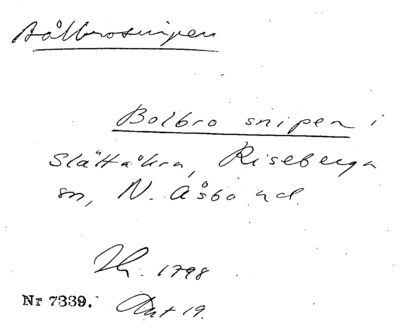 Bålbrosnipen
Bolbro snipen i
Slättåkra, Riseberga
sn, N. Åsbo hd.
1798
Nr 7339. Akt 19.